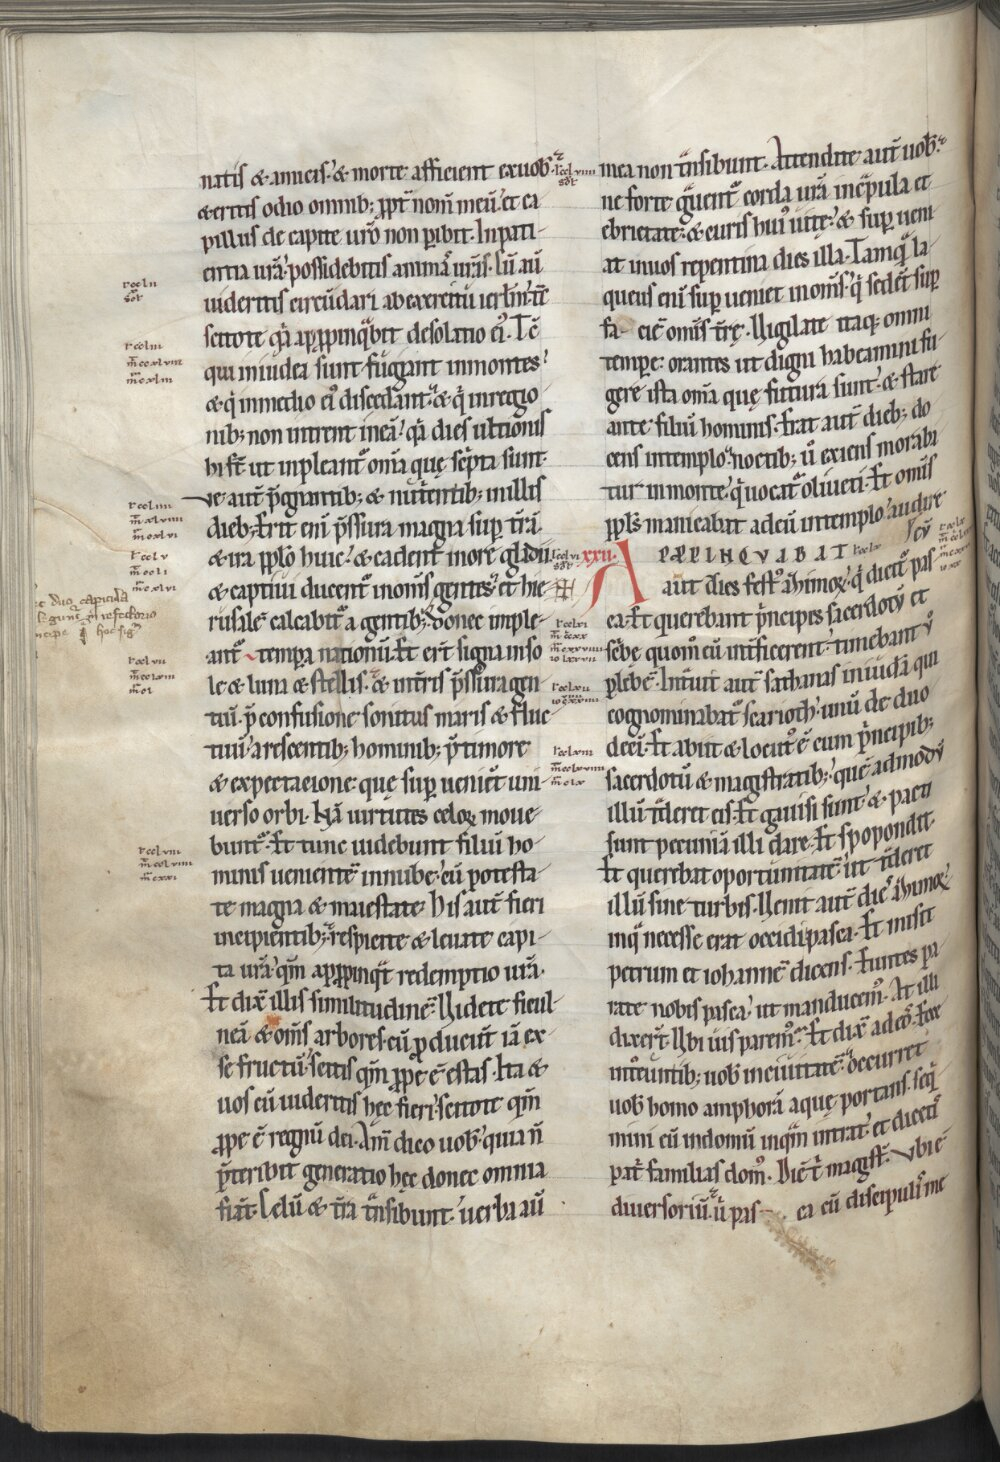 natis & amicis· & morte afficient ex uob̅·
& eritis odio omnib; ꝓpt̅ nom̅ meu̅· et ca
pillus de capite uro̅ non ꝑibit· In pati-
entia ura̅ possidebitis anima̅ ur̅is· Cu̅ au̅
uideritis circu̅dari ab exercitu ierl̅m· t̅c
scitote q̅a appropinq̅bit desolatio ei̅· T̅c
qui in iudea sunt fugiant in montes·
& q̅ in medio ei̅ discedant· & q̅ in regio
nib; non intrent in ea̅· q̅a dies ultionis
hi s̅t ut inpleant̅ om̅a quę sc̅pta sunt·
Ve aut̅ p̅gnantib; & nut̅entib; in illis
dieb; Erit eni̅ p̅ssura magna sup̅ t̅ra̅·
& ira ppl̅o huic· & cadent in ore gladii·
& captiui ducent̅ in om̅s gentes· et hie
rusale̅ calcabit̅ a gentib; donec imple-
ant̅ tempora nationu̅· Et er̅t signa in so
le & luna & stellis· & in t̅ris p̅ssura gen
tiu̅· p̅ confusione sonitus maris & fluc
tuu̅· arescentib; hominib; p̅ timore
& expectacione· quę sup̅ uenie̅t uni-
uerso orbi· Na̅ uirtutes celoꝝ moue-
bunt̅· Et tunc uidebunt filiu̅ ho-
minis ueniente̅ in nube· cu̅ potesta-
te magna & maiestate· His aut̅ fieri
incipientib; respicite & leuate capi-
ta ura̅· qm̅ appropinq̅t redemptio ura̅·
Et dix̅ illis similitudine̅· Uidete ficul-
nea̅ & om̅s arbores· cu̅ producu̅t ia̅ ex
se fructu̅· scitis qm̅ prope e̅ estas· Ita &
uos cu̅ uideritis hęc fieri· scitote qm̅
prope e̅ regnu̅ dei· Am̅ dico uob̅· quia n̅
p̅teribit generatio hęc donec omnia
fia̅t· Celu̅ & t̅ra t̅nsibunt· uerba au̅
mea non t̅nsibunt· Attendite aut̅ uob̅·
ne forte g̅uent̅ corda ura̅ in c̅pula et
ebrietate· & curis hui̅ uitę· & sup̅ueni
at in uos repentina dies illa· Tamq̅ la-
queus eni̅ sup̅ ueniet in om̅s· q̅ sede̅t sup̅
fa- cie̅ omi̅s t̅rę· Uigilate itaq; omni
tempe̅· orantes ut digni habeamini fu-
gere ista om̅a quę futura sunt· & stare
ante filiu̅ hominis· Erat aut̅ dieb; do
cens in templo· noctib; u̅ exiens moraba
tur in monte· q̅ uocat̅ oliueti· Et omi̅s
ppl̅s manicabat ad eu̅ in templo audire
eu̅
XXII· APꝒPINQVABAT
aut̅ dies fest̅ azimoꝝ· q̅ dicit̅ pas
ca· Et querebant p̅ncipes sacerdotu̅ et
sc̅be quom̅ eu̅ int̅ficerent· timebant u̅
plebe̅· Int̅uit aut̅ sathanas in iuda̅ qui
cognominabat̅ scarioth· unu̅ de duo
deci̅· Et abiit & locut̅ e̅ cum p̅ncipib;
sacerdotu̅ & magistratib; que̅admodu̅
illu̅ t̅deret eis· Et gauisi sunt· & pacti
sunt pecunia̅ illi dare· Et spopondit·
Et querebat oportunitate̅· ut t̅deret
illu̅ sine turbis· Uenit aut̅ die̅ azimoꝝ·
in q̅ necesse erat occidi pasca· Et misit
petrum et iohanne̅ dicens· Euntes pa
rate nobis pasca· ut manducem̅· At illi
dixer̅t· Ubi uis parem̅· Et dix̅ ad eo̅· Ecce
int̅euntib; uob̅ in ciuitate̅· occurret
uob̅ homo amphora̅ aquę portans· seq̅
mini eu̅ in domu̅ in qm̅ intrat· et diceti̅
pat̅ familias dom̅· Dic̅t t̅ magist̅· Vbi e̅
diuersoriu̅· u̅ pas- ca cu̅ discipulis me